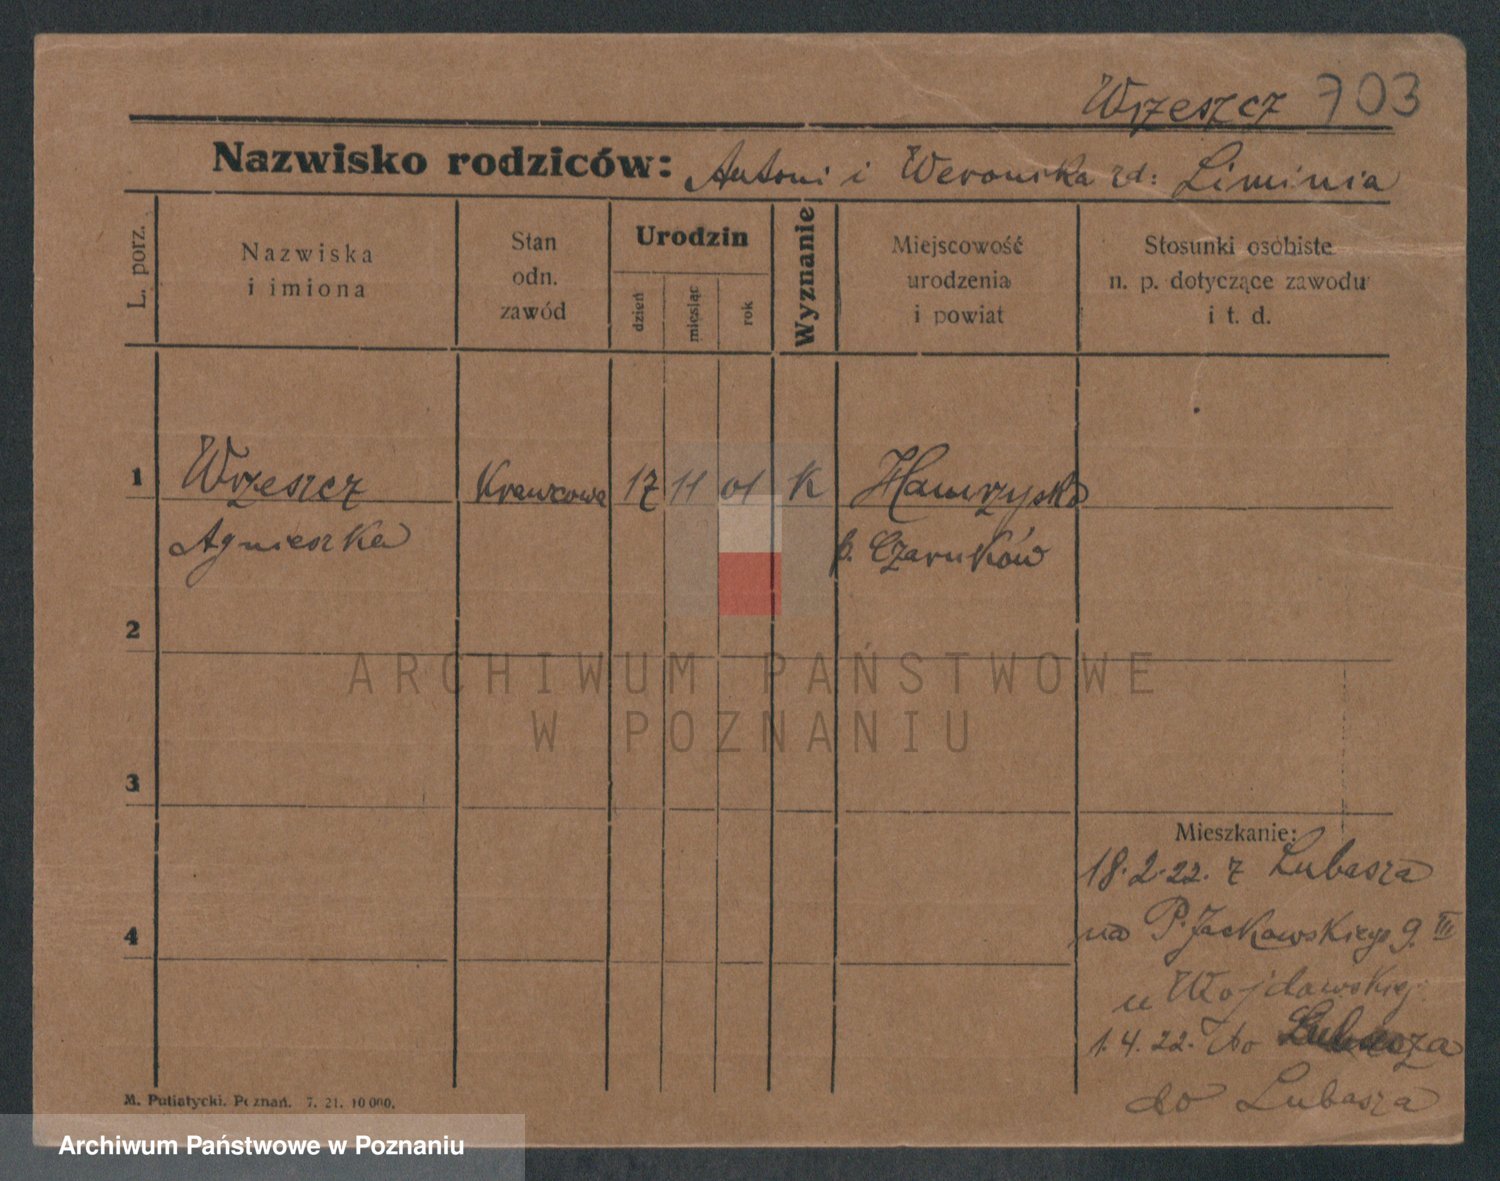 Wrzeszcz 703
Nazwisko rodziców: Antoni i Weronika zd: Liminia
L. porz.
Nazwiska
i imiona
Stan
odn.
zawód
Urodzin
dzień
miesiąc
rok
Wyznanie
Miejscowość
urodzenia
i powiat
Stosunki osobiste
n. p. dotyczące zawodu
i t. d.
1 Wrzeszcz Krawcowa 17 11 01 K Hamrzysko
Agnieszka p. Czarnków
2
ARCHIWUM PAŃSTWOWE
W POZNANIU
3
Mieszkanie:
18.2.22. z Lubasza
4
na P. Jackowskiego 9. III
u Wojdowskiej
1.4.22. do Lubasza
do Lubasza
M. Putiatycki. Poznań. 7. 21. 10 000.
Archiwum Państwowe w Poznaniu